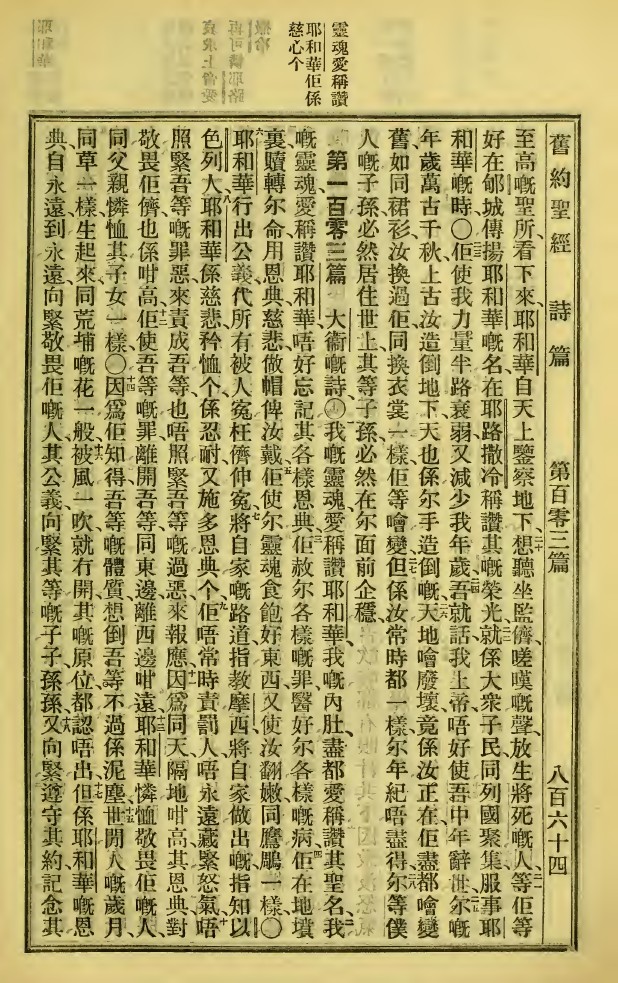 舊約聖經　詩篇　第百零三篇　八百六十四
靈魂愛稱讚
耶和華佢係
慈心个
至高嘅聖所看下來耶和華自天上鑒察地下二十想聽坐監儕嗟嘆嘅聲放生將死嘅人二一等佢等
好在郇城傳揚耶和華嘅名在耶路撒冷稱讚其嘅榮光二二就係大衆子民同列國聚集服事耶
和華嘅時〇二三佢使我力量半路衰弱又減少我年歲二四吾就話我上帝唔好使吾中年辭世尔嘅
年歲萬古千秋二五上古汝造倒地下天也係尔手造倒嘅二六天地噲廢壞竟係汝正在佢盡都噲變
舊如同裙衫汝換過佢同換衣裳一樣佢等噲變二七但係汝常時都一樣尔年紀唔盡得二八尔等僕
人嘅子孫必然居住世上其等子孫必然在尔面前企穩
第一百零三篇　大衞嘅詩〇一我嘅靈魂愛稱讚耶和華我嘅內肚盡都愛稱讚其聖名二我
嘅靈魂愛稱讚耶和華唔好忘記其各樣恩典三佢赦尔各樣嘅罪醫好尔各樣嘅病四佢在地墳
裏贖轉尔命用恩典慈悲做帽俾汝戴五佢使尔靈魂食飽好東西又使汝翻嫩同鷹鵰一樣〇
六耶和華行出公義代所有被人寃枉儕伸寃七將自家嘅路道指教摩西將自家做出嘅指知以
色列人八耶和華係慈悲矜恤个係忍耐又施多恩典个九佢唔常時責罰人唔永遠藏緊怒氣十唔
照緊吾等嘅罪惡來責成吾等也唔照緊吾等嘅過惡來報應十一因爲同天隔地咁高其恩典對
敬畏佢儕也係咁高十二佢使吾等嘅罪離開吾等同東邊離西邊咁遠十三耶和華憐恤敬畏佢嘅人
同父親憐恤其子女一樣〇十四因爲佢知得吾等嘅體質想倒吾等不過係泥塵十五世間人嘅歲月
同草一樣生起來同荒埔嘅花一般十六被風一吹就冇開其嘅原位都認唔出十七但係耶和華嘅恩
典自永遠到永遠向緊敬畏佢嘅人其公義向緊其等嘅子子孫孫十八又向緊遵守其約記念其